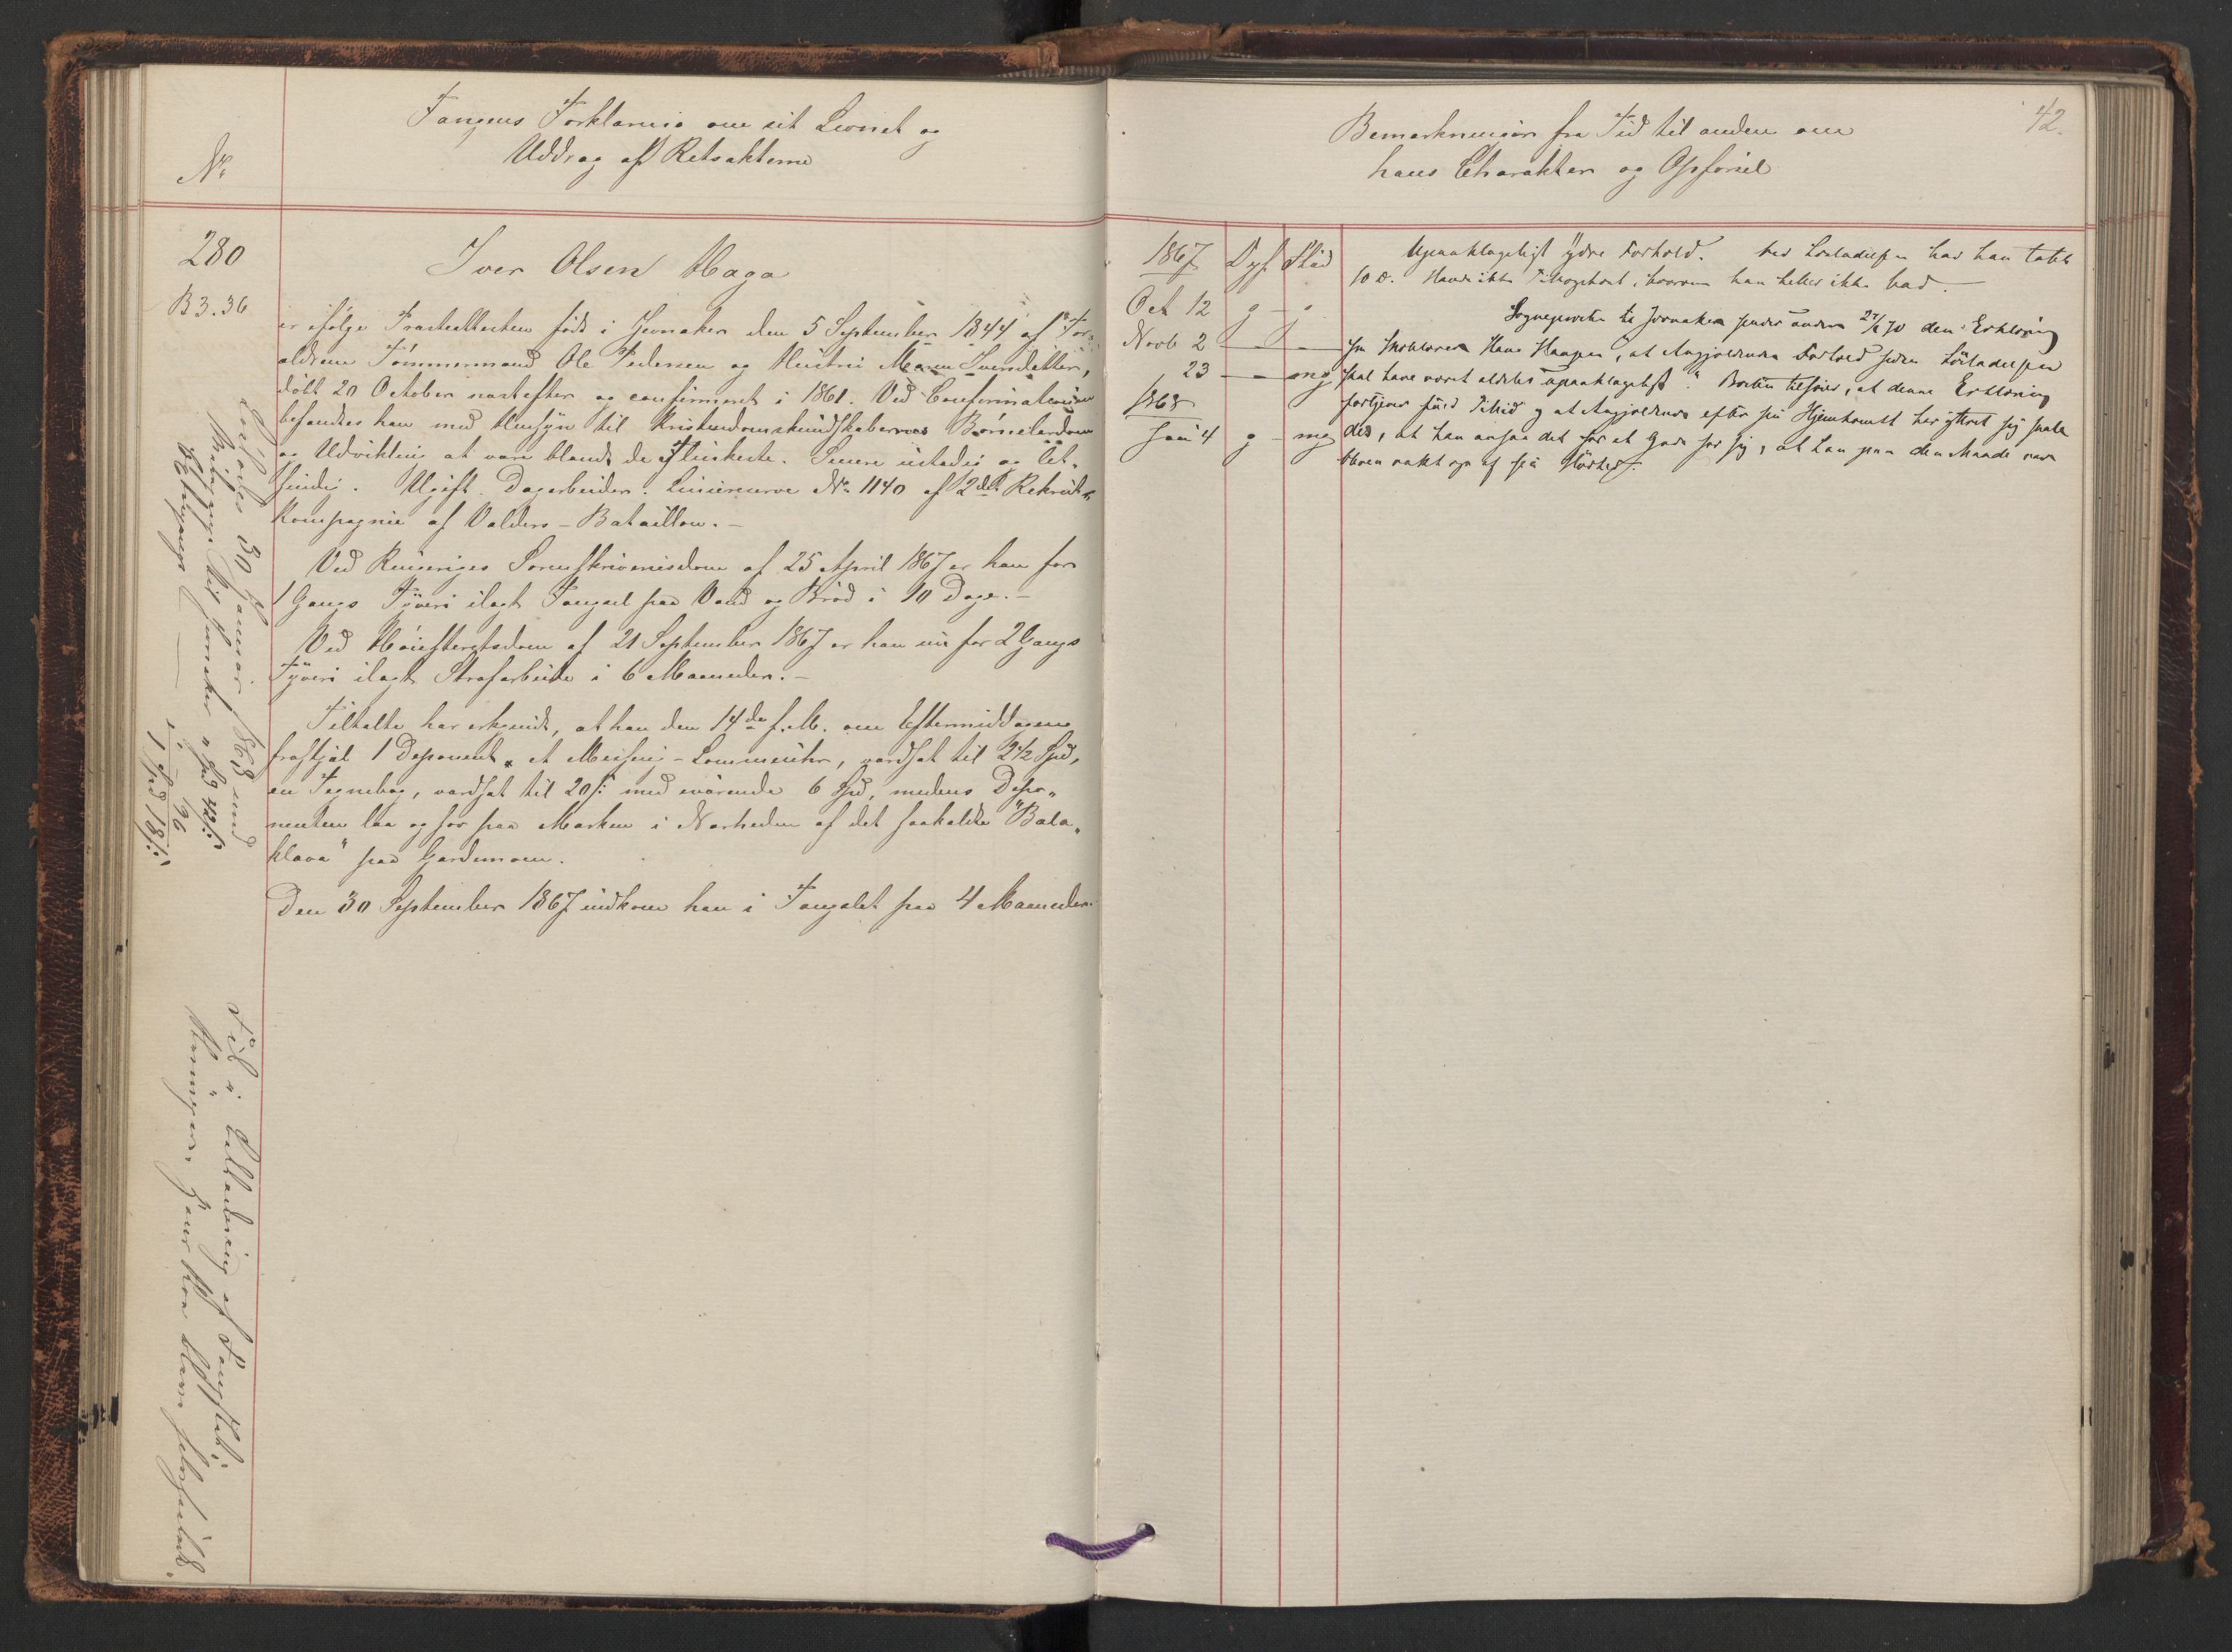 Fangens Forklaring om sit Levnet og
Uddrag af Retsakterne
No
280
B 3. 36
Iver Olsen Haga
er ifølge Præsteattesten født i Jevnaker den 5 September 1844 af For-
ældrene Tømmermand Ole Pedersen og Hustru Maren Svensdatter,
døbt 20 October næstefter og confirmeret i 1861. Ved Confirmationen
befandtes han med Hensyn til Kristendomskundskabernes Børnelærdom
og Udvikling at være blandt de flinkeste. Senere ustadig og let-
sindig. Ugift. Dagarbeider. Liniereserve No 1140 af 2det Rekrut-
kompagnie af Valders-Bataillon.-
Ved Ringeriges Sorenskriverisdom af 25 April 1867 er han for
1 Gangs Tyveri ilagt Fængsel paa Vand og Brød i 10 Dage.-
Ved Høiesteretsdom af 21 September 1867 er han nu for 2 Gangs
Tyveri ilagt Strafarbeide i 6 Maaneder.-
Tiltalte har erkjendt, at han den 14de f. M. om Eftermiddagen
frastjal 1 Deponent, et Messing-Lommeuhr, værdsat til 2 1/2 Spd,
en Tegnebog, værdsat til 20 s: med iværende 6 Spd, medens Depo-
nenten laa og sov paa Marken i Nærheden af det saakaldte "Bala-
klava" paa Gardemoen.
Den 30 September 1867 indkom han i Fængslet paa 4 Maaneder.
Løslades 30 Januar 1868 med
til Jevnaker " Spd 42 s:
1 Spd 18 s:
Fik i Belladning af Fangekat:
42.
Bemærkninger fra Tid til anden om
hans Charakter og Opførsel
1867 Opf. Flid
Oct 12 g - g
Novb 2 - -
23 - mg
1868
Jan 4 g - mg
Upaaklageligt ydre Forhold. Ved Løsladelsen har han tabt
10 ℔. Havde ikke Tillægskost, hvorom han heller ikke bad.-
Sognepresten til Jevnaker sender under 27/6 70 den Erklæring
fra Skolelærer Hans Haagen, at Angjældendes Forhold siden Løsladelsen
skal have været aldeles "upaaklageligt". Præsten tilføier, at denne Erklæring
fortjener fuld Tillid og at Angjældende efter sin Hjemkomst har yttret sig saale-
des, at han ansaa det for et Gode for sig, at han paa den Maade var
bleven vakt op af sin Sløvhed.-